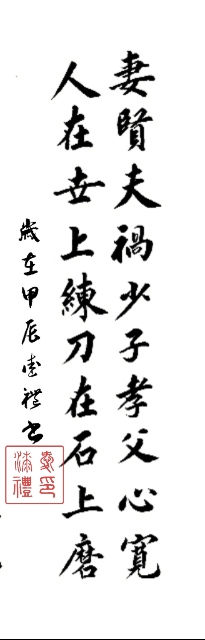 妻賢夫禍少子孝父心寬
人在世上練刀在石上磨
歲在甲辰禮書